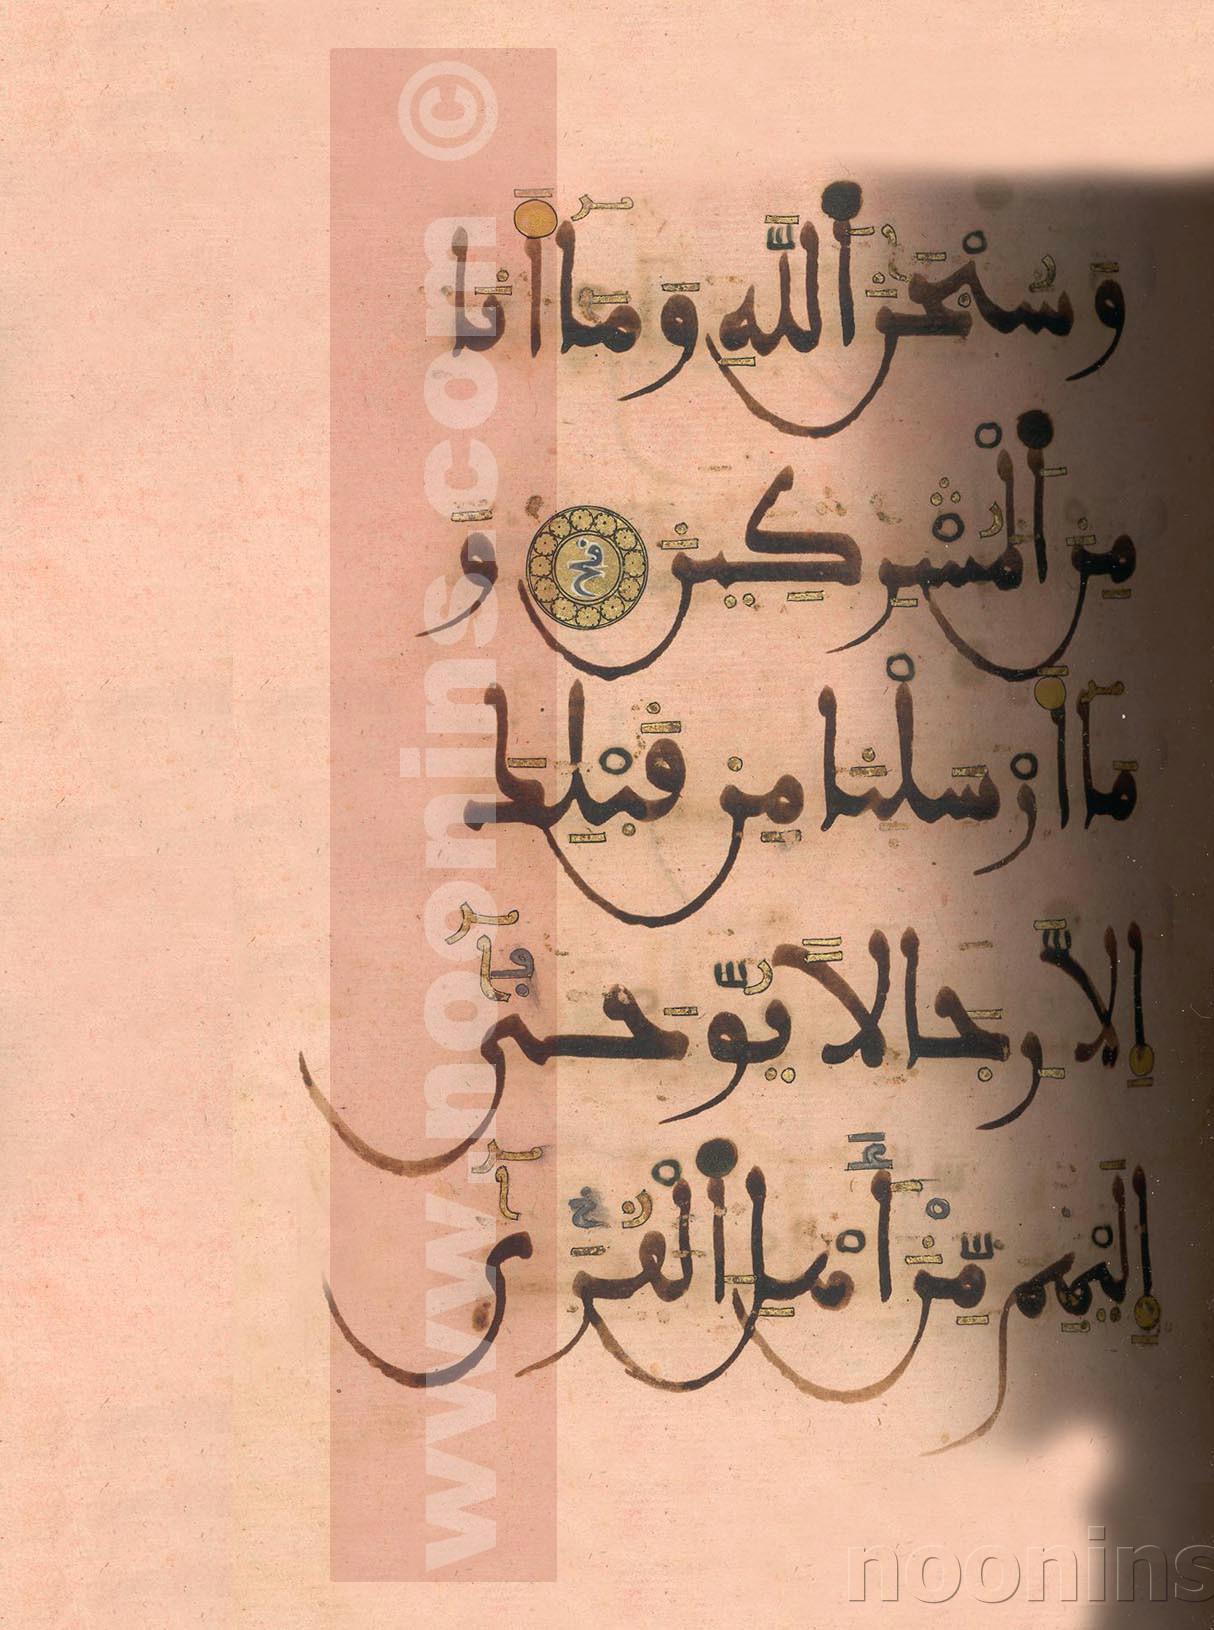 وَسُبْحَٰنَ اَ۬للَّهِ وَمَآ أَنَا
مِنَ اَ۬لْمُشْرِكِينَ قح وَ
مَآ أَرْسَلْنَا مِن قَبْلِكَ
إِلَّا رِجَالًا يُوحَىٰٓ
إِلَيْهِم مِّنْ أَهْلِ اِ۬لْقُرَىٰٓ
www.noonins.com ©
noonins